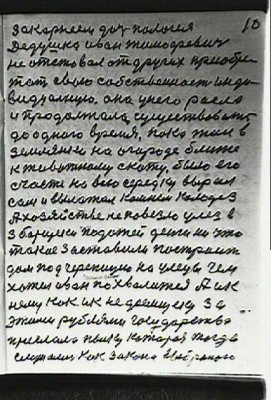 10
закармеем для
Дедушка иван тимофеевич
не отставал от других приобре
тат свою собственность инди
видуалную. она у него расла
и продолжала существовать
до одного время, пока жил в
землянки на огороде ближе
к животному скоту, было его
счасти на всю середку вырыл
сам и выложил камнем колодез
А хозяйстве не повезло улез в
деньги ни что
такое заставили построит
дом под черепицую на улеце чем
хотел иван похвалится А и к
нему как и к не дедушку за
этими рублями государство
прислала которая тогда
как закона